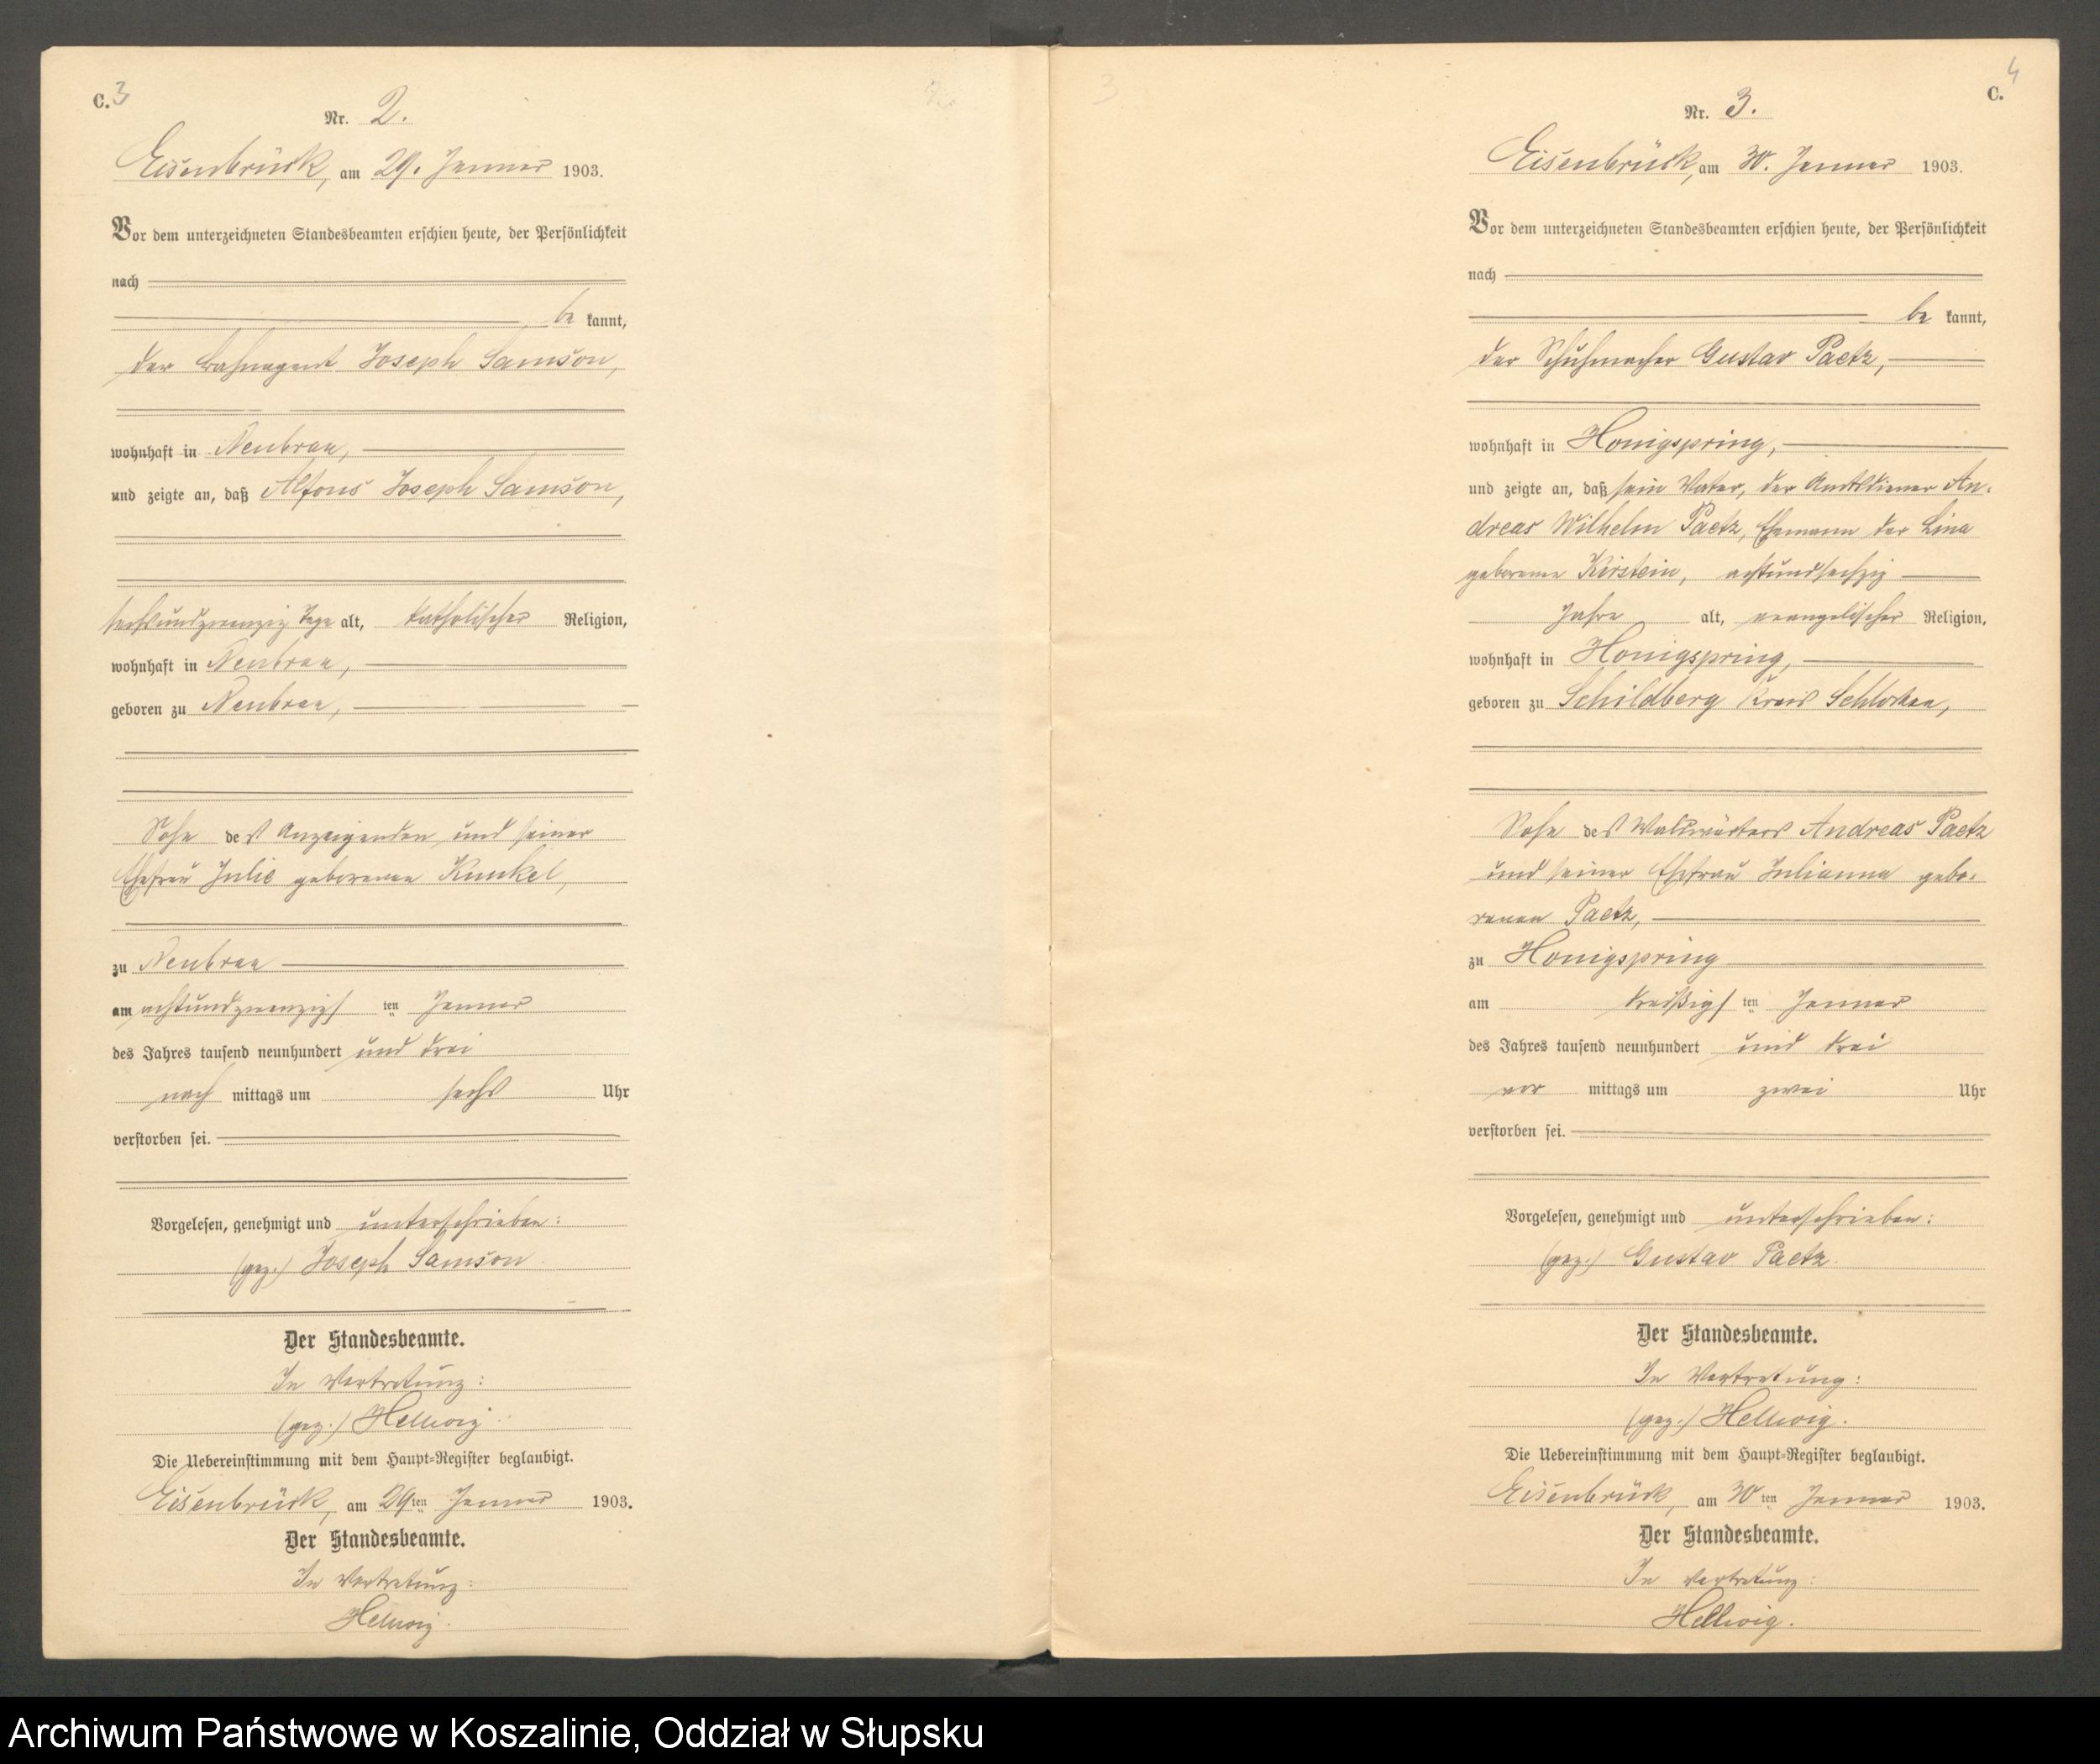 C. 3
Nr. 2.
Eisenbrück, am 29. Januar 1903.
Vor dem unterzeichneten Standesbeamten erschien heute, der Persönlichkeit
nach
be kannt,
der Bahnagent Joseph Samson,
wohnhaft in Neubraa,
und zeigte an, daß Alfons Joseph Samson,
Tage alt, katholischer Religion,
wohnhaft in Neubraa,
geboren zu Neubraa,
Sohn des Anzeigenden und seiner
Ehefrau Julie geborenen Kunkel,
zu Neubraa
am achtundzwanzigs ten Januar
des Jahres tausend neunhundert und drei
nach mittags um sechs Uhr
verstorben sei.
Vorgelesen, genehmigt und unterschrieben:
(gez.) Joseph Samson.
Der Standesbeamte.
In Vertretung:
(gez.) Hellwig.
Die Uebereinstimmung mit dem Haupt-Register beglaubigt.
Eisenbrück, am 29ten Januar 1903.
Der Standesbeamte.
In Vertretung:
Hellwig.
3
4
C.
Nr. 3.
Eisenbrück, am 30. Januar 1903.
Vor dem unterzeichneten Standesbeamten erschien heute, der Persönlichkeit
nach
be kannt,
der Schuhmacher Gustav Paetz,
wohnhaft in Honigspring,
und zeigte an, daß sein Vater, der Amtsdiener An-
dreas Wilhelm Paetz, Ehemann der Lina
geborene Kirstein, achtundsechzig
Jahre alt, evangelischer Religion,
wohnhaft in Honigspring,
geboren zu Schildberg Kreis Schlochau,
Sohn des Andreas Paetz
und seiner Ehefrau Julianna gebo-
renen Paetz,
zu Honigspring
am dreißigs ten Januar
des Jahres tausend neunhundert und drei
vor mittags um zwei Uhr
verstorben sei.
Vorgelesen, genehmigt und unterschrieben:
(gez.) Gustav Paetz.
Der Standesbeamte.
In Vertretung:
(gez.) Hellwig.
Die Uebereinstimmung mit dem Haupt-Register beglaubigt.
Eisenbrück, am 30ten Januar 1903.
Der Standesbeamte.
In Vertretung:
Hellwig.
Archiwum Państwowe w Koszalinie, Oddział w Słupsku